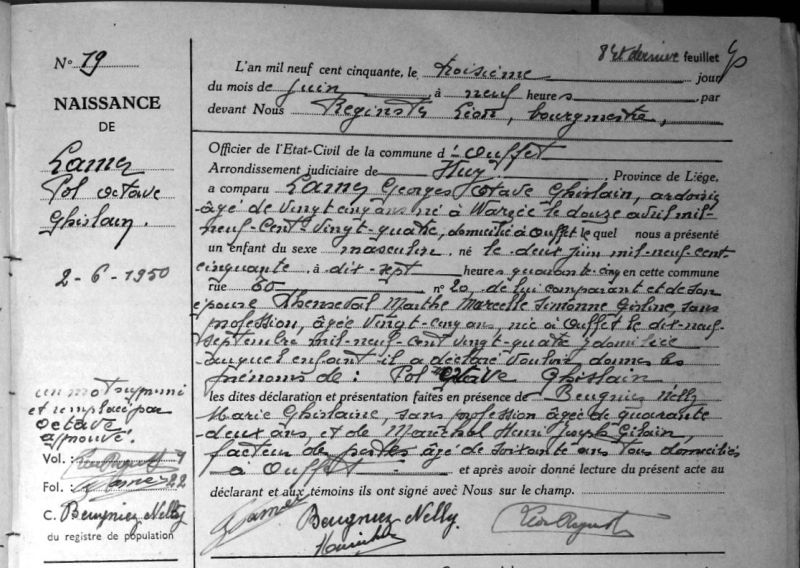 8e et dernier feuillet
N° 19
NAISSANCE
DE
Lamy
Pol Octave
Ghislain.
2-6-1950
un mot supprimé
et remplacé par
Octave
approuvé.
Vol.
Fol. 22
C. Beugniez Nelly
du registre de population
L'an mil neuf cent cinquante, le troisième jour
du mois de juin, à neuf heures, par
devant Nous Reginster Léon, bourgmestre,
Officier de l'Etat-Civil de la commune d'Ouffet
Arrondissement judiciaire de Huy, Province de Liége,
a comparu Lamy Georges Octave Ghislain, ardoisier
âgé de vingt cinq ans né à Warzée le douze avril mil-
neuf-cent-vingt-quatre, domicilié à Ouffet le quel nous a présenté
un enfant du sexe masculin, né le deux juin mil-neuf-cent
cinquante, à dix-sept heures quarante-cinq en cette commune
rue n° 20, de lui comparant et de son
épouse Thenseval Marthe Marcelle Simonne Gisline, sans
profession, âgée vingt-cinq ans, née à Ouffet le dix-neuf
septembre mil-neuf-cent vingt-quatre y domiciliée
auquel enfant il a déclaré vouloir donner les
prénoms de : Pol Octave Ghislain
les dites déclaration et présentation faites en présence de Beugnies Nelly
Marie Ghislaine, sans profession âgée de quarante
deux ans, et de Maréchal Henri Joseph Gilain,
facteur de postes âgé de soixante ans tous domiciliés
à Ouffet et après avoir donné lecture du présent acte au
déclarant et aux témoins ils ont signé avec Nous sur le champ.
Beugniez Nelly.